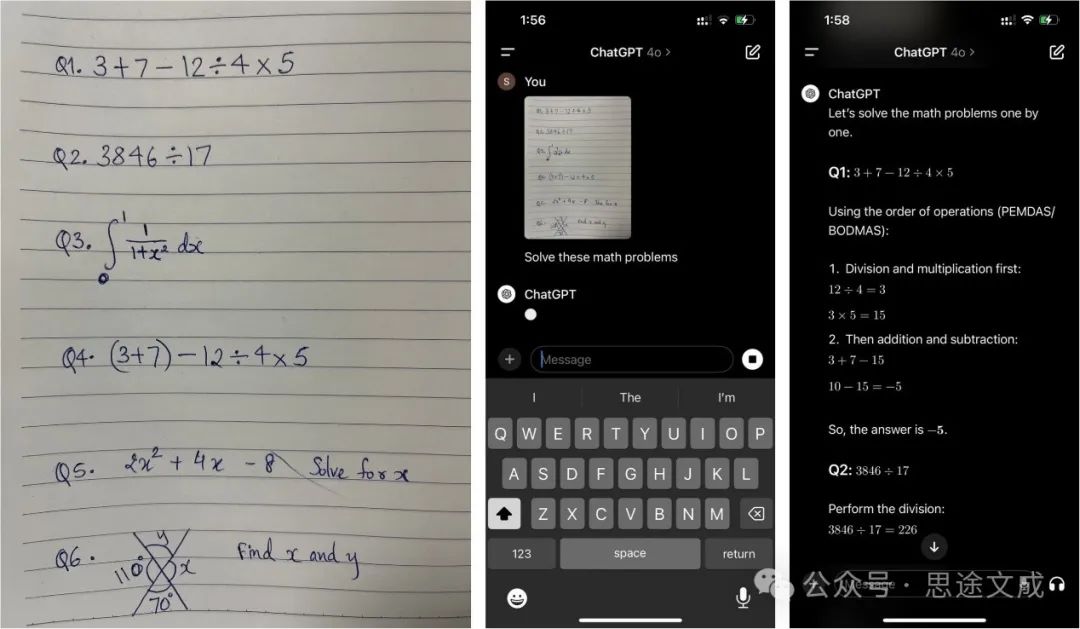 Q1. 3+7-12÷4×5
Q2. 3846÷17
Q3. ∫₀¹ 1/(1+x²) dx
Q4. (3+7)-12÷4×5
Q5. 2x² + 4x - 8 Solve for x
Q6. y 110° x 70° Find x and y
1:56
ChatGPT 4o >
S You
Q1. 3+7-12÷4×5
Q2. 3846÷17
Solve these math problems
ChatGPT
Message
I The I'm
Q W E R T Y U I O P
A S D F G H J K L
Z X C V B N M
123 space return
1:58
ChatGPT 4o >
ChatGPT
Let's solve the math problems one by
one.
Q1: 3 + 7 − 12 ÷ 4 × 5
Using the order of operations (PEMDAS/
BODMAS):
1. Division and multiplication first:
12 ÷ 4 = 3
3 × 5 = 15
2. Then addition and subtraction:
3 + 7 − 15
10 − 15 = −5
So, the answer is −5.
Q2: 3846 ÷ 17
Perform the division:
3846 ÷ 17 = 226
Message
公众号 · 思途文成